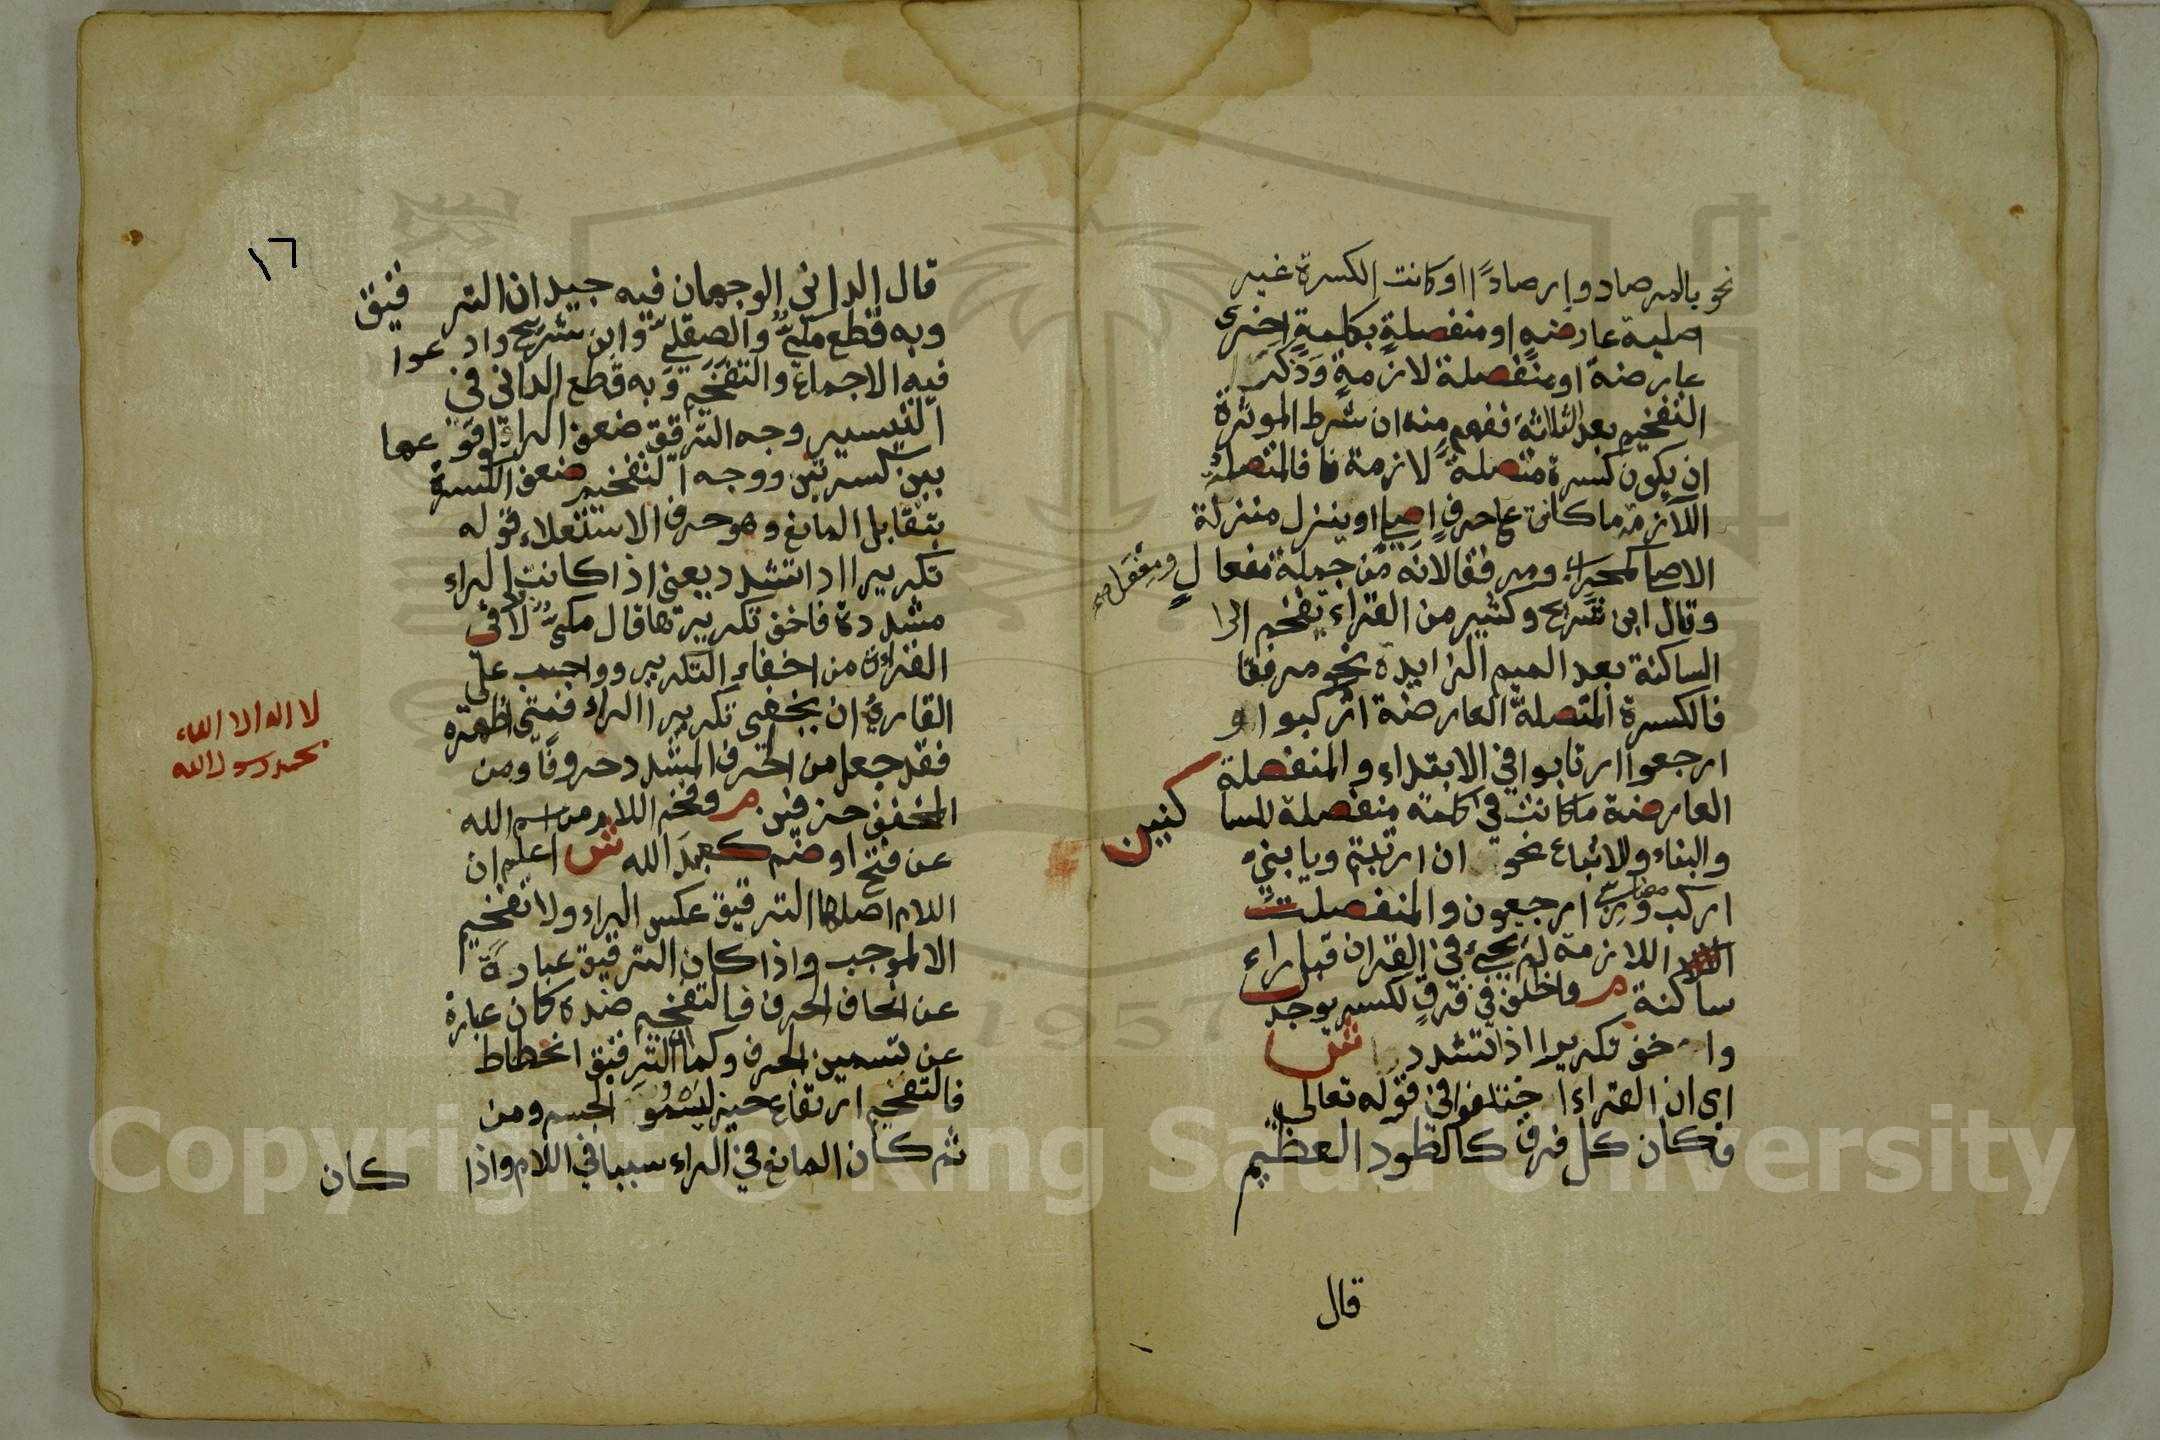 نحو بالمرصاد وإرصادًا او كانت الكسرة غير
اصلية عارضة او منفصلة بكلمة اخرى
عارضة او منفصلة لازمة وذكر
التفخيم بعد الثلاثة ففهم منه ان شرط الموثرة
ان يكون كسرة متصلة لازمة فالمتصلة
اللازمة ما كانت على حرف اصلي او ينزل منزلة
الاصلي كمحراب ومرفقا لانه من جملة مفعال ومفعل
وقال ابن شريح وكثير من القراء يفخم الرا
الساكنة بعد الميم الزايدة نحو مرفقا
فالكسرة المتصلة العارضة اركبوا او
ارجعوا ارتابوا في الابتداء والمنفصلة
العارضة ما كانت في كلمة منفصلة للساكنين
والبناء وللاتباع نحو ان ارتبتم ويا بني
اركب ورب ارجعون والمنفصلة
اللازمة لم يجئ في القران قبل راء
ساكنة م واخلف في فرق لكسر يوجد
واخف تكريرا اذا تشدد ش
اى ان القراء اختلفوا في قوله تعالى
فكان كل فرق كالطود العظيم
قال
١٦
قال الداني الوجهان فيه جيدان الترقيق
وبه قطع مكي والصقلي وابن شريح وادعوا
فيه الاجماع والتفخيم وبه قطع الداني في
التيسير وجه الترقق ضعف الراء وقوعها
بين كسرتين ووجه التفخيم ضعف الكسرة
بتقابل المانع وهو حرف الاستعلاء قوله
تكريرا اذا تشدد يعني اذا كانت الراء
مشددة فاخف تكريرها قال مكي لا في
القراءة من اخفاء التكرير وواجب على
القارئ ان يخفى تكرير الراء فمتى اظهره
فقد جعل من الحرف المشدد حروفا ومن
المخفف حرفين م وفخم اللام من اسم الله
عن فتح او ضم كعبد الله ش اعلم ان
اللام اصلها الترقيق عكس الراء ولا تفخيم
الا لموجب واذا كان الترقيق عبارة
عن انحاف الحرف فالتفخيم ضده كان عبارة
عن تسمين الحرف وكما الترقيق انحطاط
فالتفخيم ارتفاع حيز ليسمو الجسم ومن
ثم كان المانع في الراء سببا في اللام واذا
كان
لا اله الا الله
محمد رسول الله